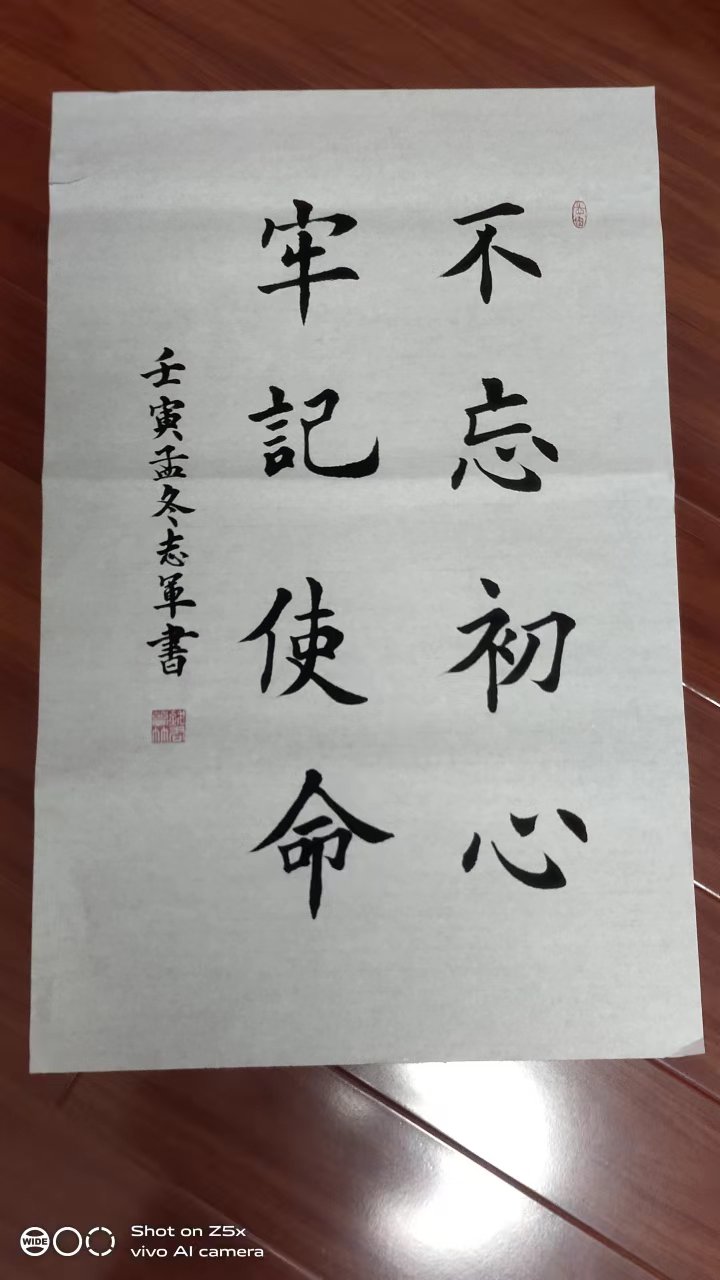 不忘初心
牢記使命
壬寅孟冬志軍書
WIDE
Shot on Z5x
vivo AI camera